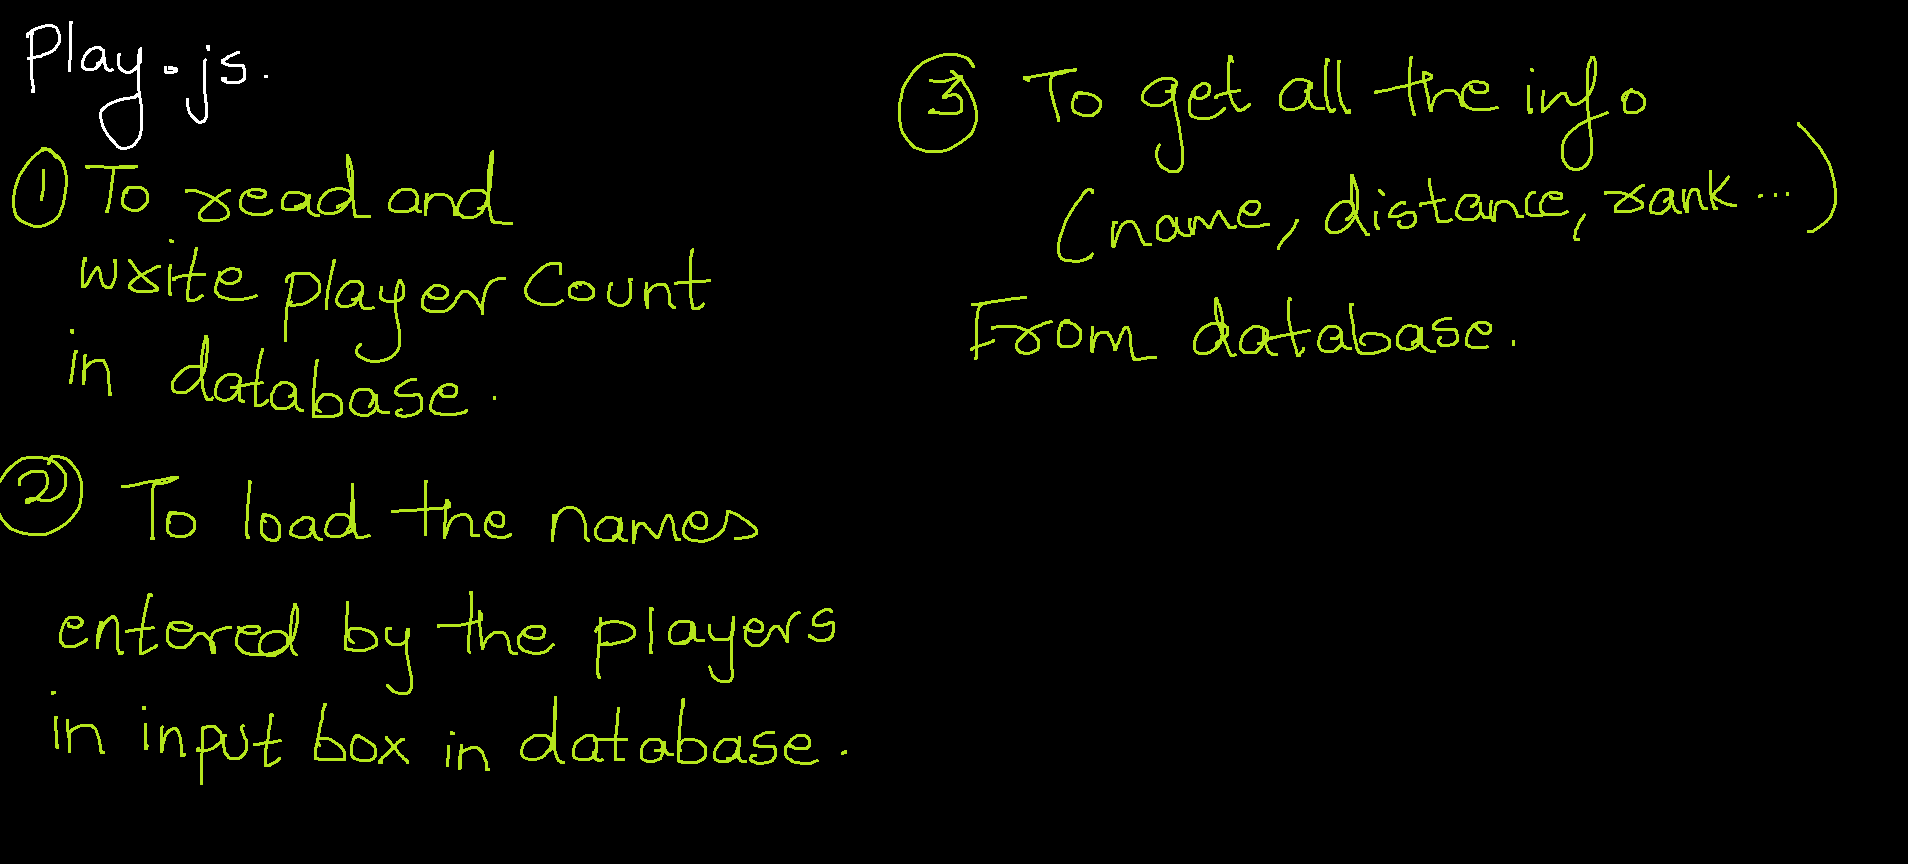 Play.js.
① To read and
write player Count
in database.
② To load the names
entered by the players
in input box in database.
③ To get all the info
(name, distance, rank ...)
From database.